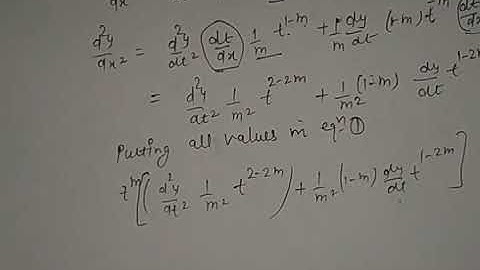 dx dx
d²y/dx² = d²y/dt² (dt/dx) 1/m t^(1-m) + 1/m dy/dt (1-m) t^-m (dt/dx)
= d²y/dt² 1/m² t^(2-2m) + 1/m² (1-m) dy/dt t^(1-2m)
Putting all values in eqn ①
t^m [(d²y/dt² 1/m² t^(2-2m)) + 1/m² (1-m) dy/dt t^(1-2m)]